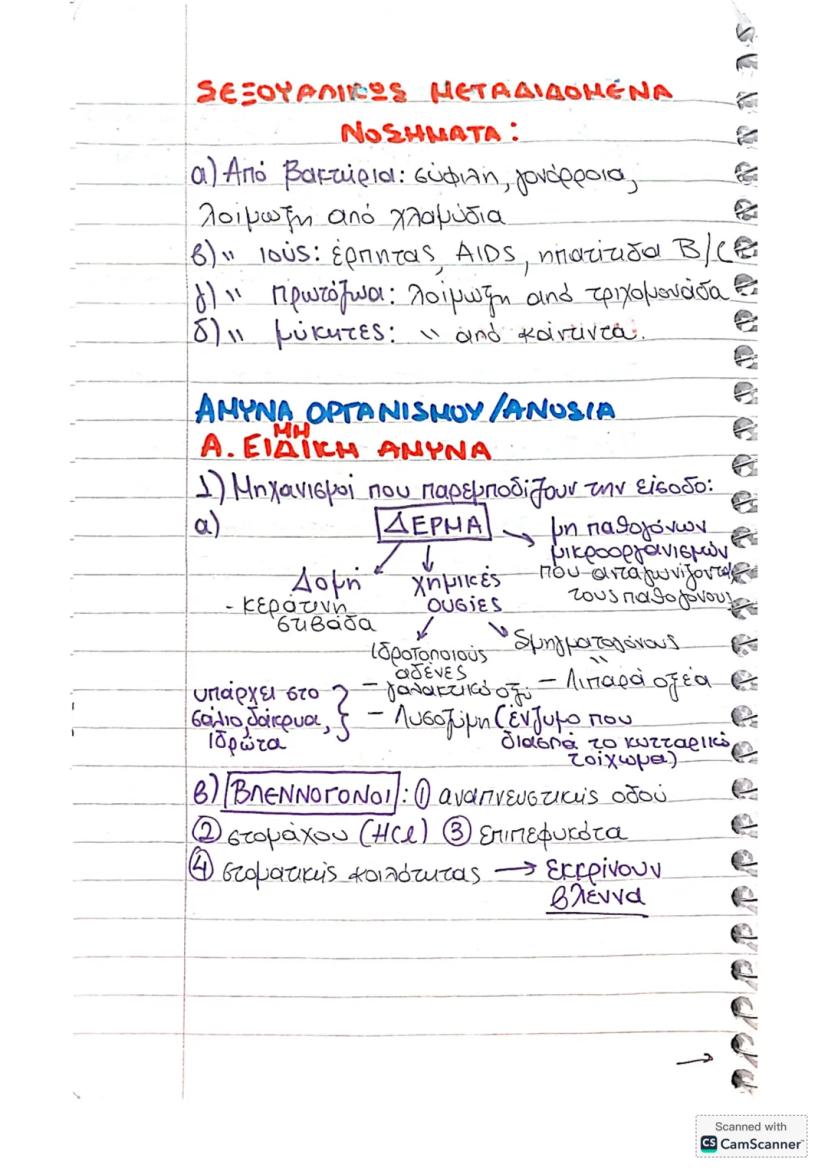 ΣΕΞΟΥΑΛΙΚΩΣ ΜΕΤΑΔΙΔΟΜΕΝΑ
ΝΟΣΗΜΑΤΑ:
α) Από βακτήρια: σύφιλη, γονόρροια,
λοίμωξη από χλαμύδια
β) " ιούς: έρπητας, AIDS, ηπατίτιδα B/C
γ) " πρωτόζωα: λοίμωξη από τριχομονάδα
δ) " μύκητες: " από κάντιντα.
ΑΜΥΝΑ ΟΡΓΑΝΙΣΜΟΥ/ΑΝΟΣΙΑ
ΜΗ
Α. ΕΙΔΙΚΗ ΑΜΥΝΑ
1) Μηχανισμοί που παρεμποδίζουν την είσοδο:
α) ΔΕΡΜΑ → μη παθογόνων
μικροοργανισμών
που ανταγωνίζονται
τους παθογόνους
Δομή
- κεράτινη
στιβάδα
χημικές
ουσίες
Ιδροτοποιούς
αδένες
- γαλακτικό οξύ
Σμηγματογόνους
"
- Λιπαρά οξέα
υπάρχει στο
σάλιο, δάκρυα,
ιδρώτα
- Λυσοζύμη (ένζυμο που
διασπά το κυτταρικό
τοίχωμα)
β) ΒΛΕΝΝΟΓΟΝΟΙ: ① αναπνευστικής οδού
② στομάχου (HCl) ③ επιπεφυκότα
④ στοματικής κοιλότητας → εκκρίνουν
βλέννα
→
Scanned with
CS CamScanner